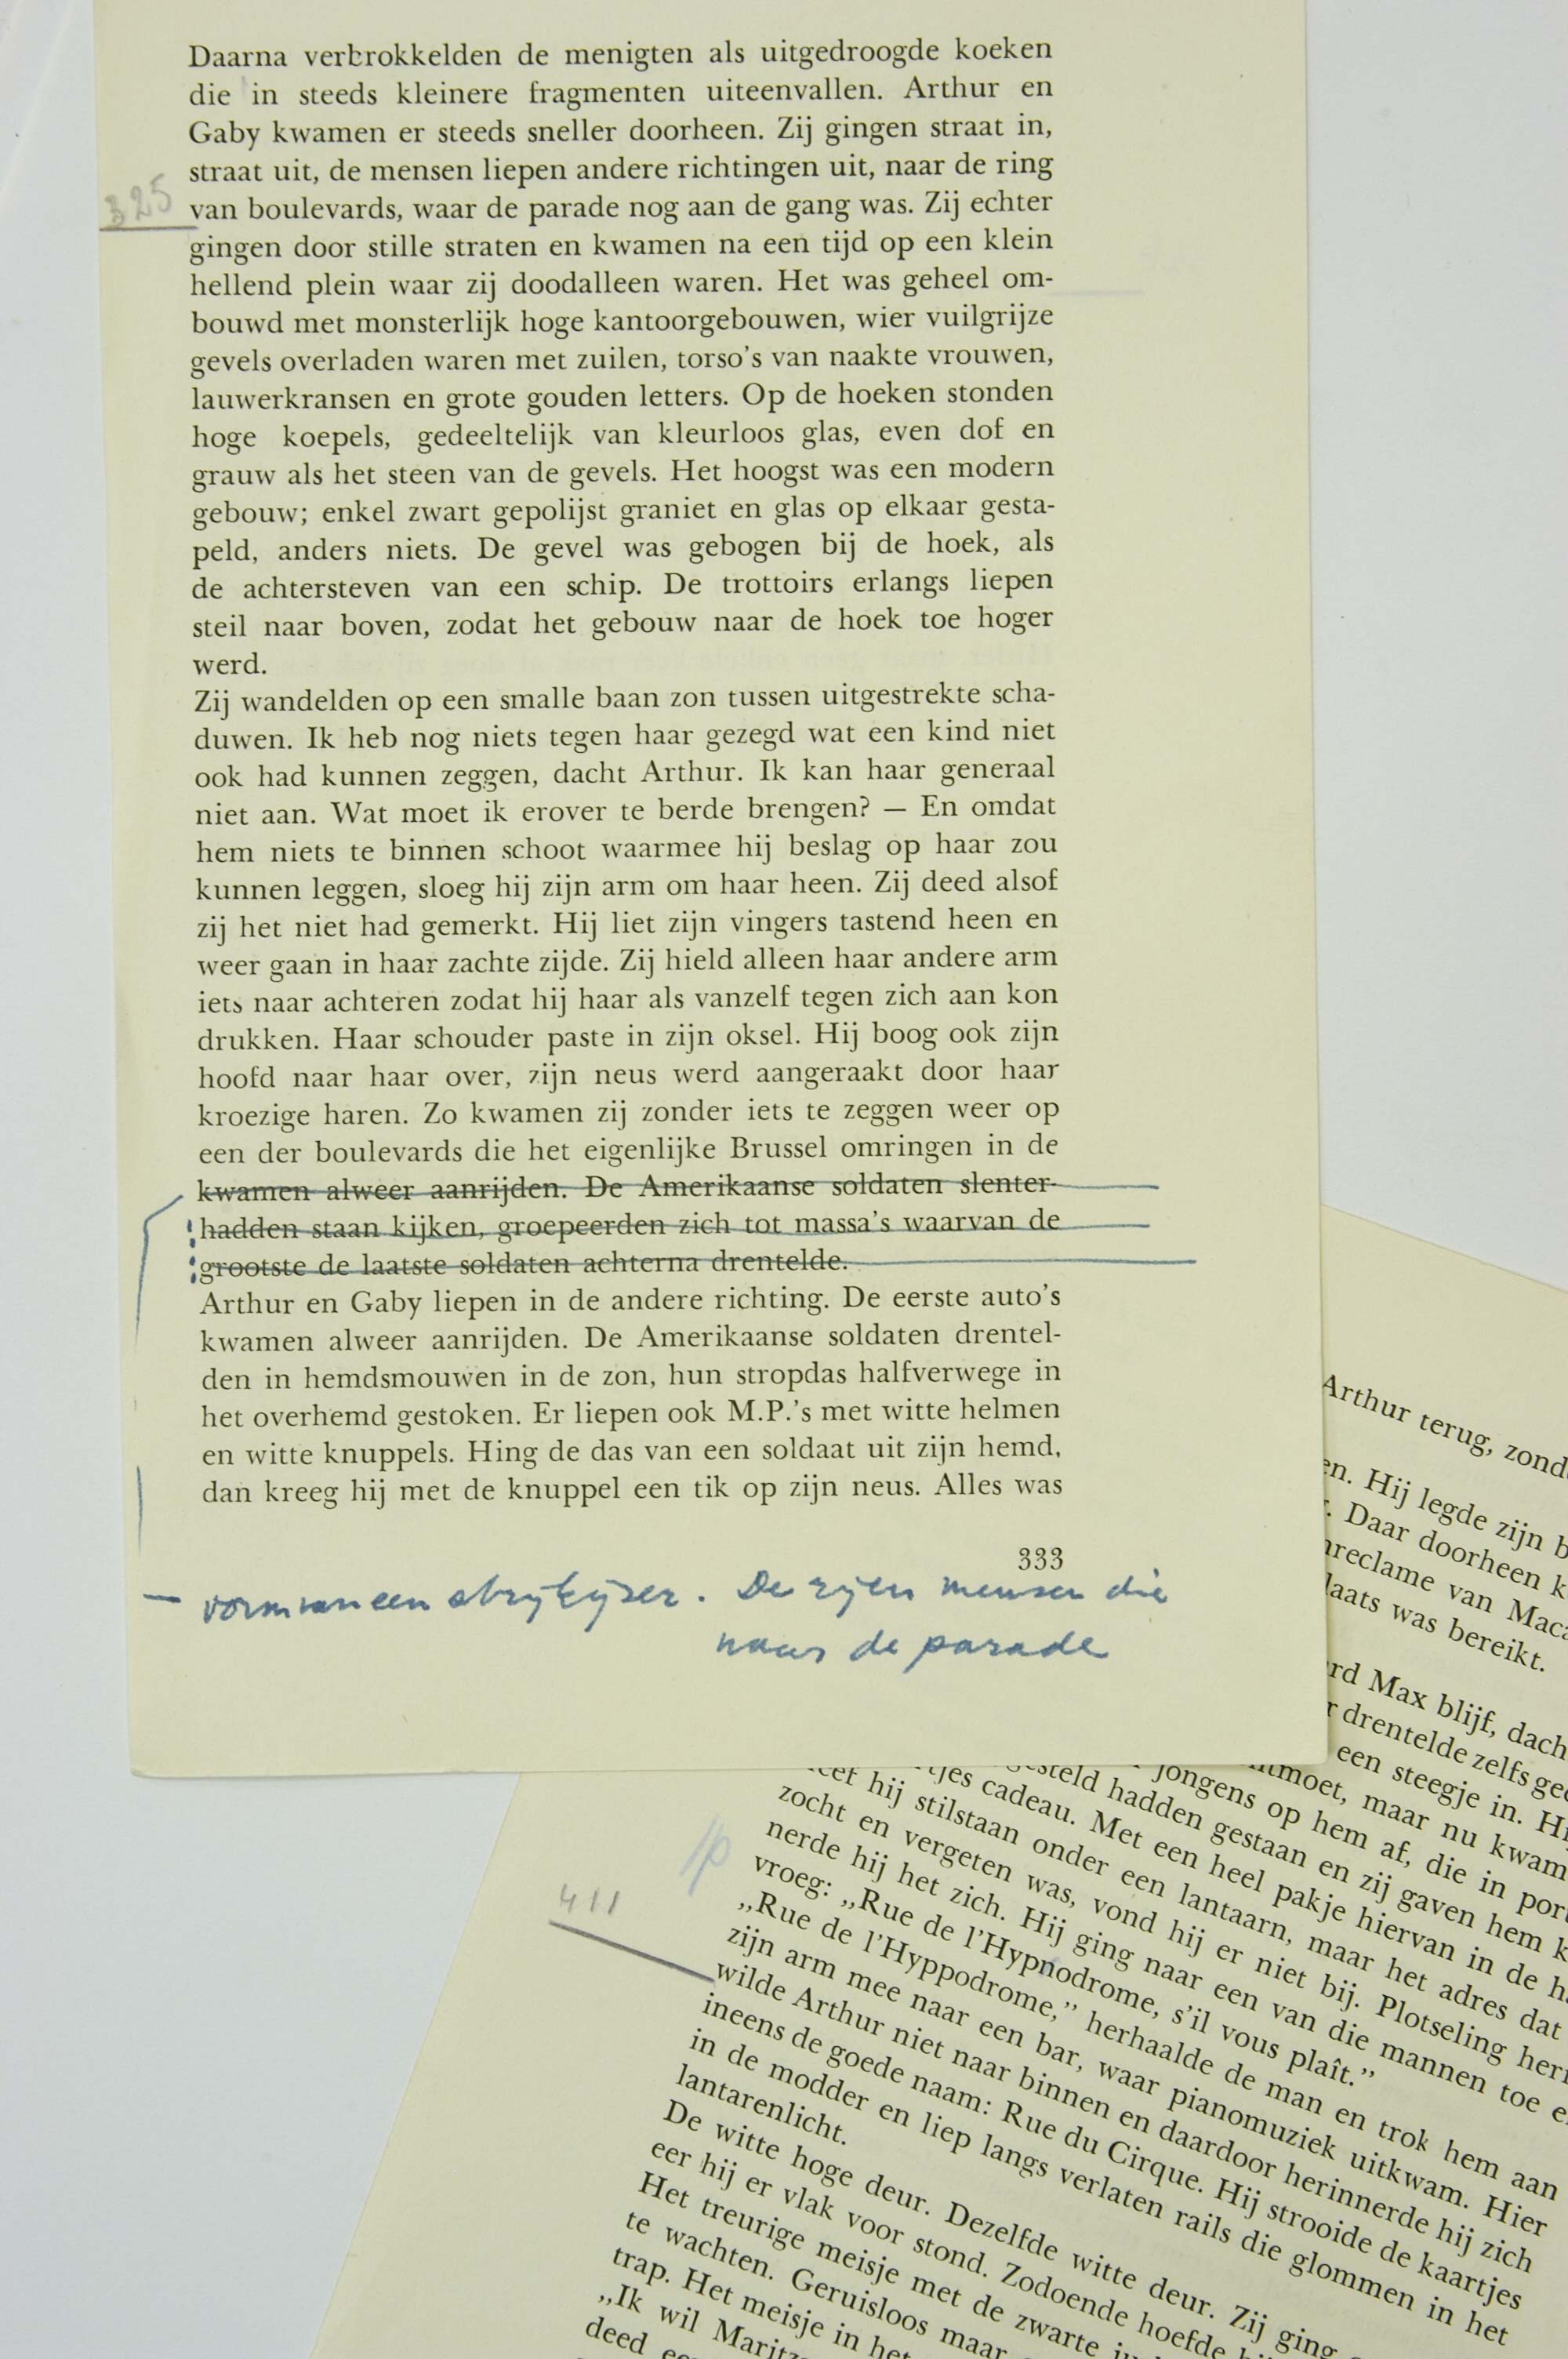 Daarna verbrokkelden de menigten als uitgedroogde koeken
die in steeds kleinere fragmenten uiteenvallen. Arthur en
Gaby kwamen er steeds sneller doorheen. Zij gingen straat in,
straat uit, de mensen liepen andere richtingen uit, naar de ring
325
van boulevards, waar de parade nog aan de gang was. Zij echter
gingen door stille straten en kwamen na een tijd op een klein
hellend plein waar zij doodalleen waren. Het was geheel om-
bouwd met monsterlijk hoge kantoorgebouwen, wier vuilgrijze
gevels overladen waren met zuilen, torso's van naakte vrouwen,
lauwerkransen en grote gouden letters. Op de hoeken stonden
hoge koepels, gedeeltelijk van kleurloos glas, even dof en
grauw als het steen van de gevels. Het hoogst was een modern
gebouw; enkel zwart gepolijst graniet en glas op elkaar gesta-
peld, anders niets. De gevel was gebogen bij de hoek, als
de achtersteven van een schip. De trottoirs erlangs liepen
steil naar boven, zodat het gebouw naar de hoek toe hoger
werd.
Zij wandelden op een smalle baan zon tussen uitgestrekte scha-
duwen. Ik heb nog niets tegen haar gezegd wat een kind niet
ook had kunnen zeggen, dacht Arthur. Ik kan haar generaal
niet aan. Wat moet ik erover te berde brengen? — En omdat
hem niets te binnen schoot waarmee hij beslag op haar zou
kunnen leggen, sloeg hij zijn arm om haar heen. Zij deed alsof
zij het niet had gemerkt. Hij liet zijn vingers tastend heen en
weer gaan in haar zachte zijde. Zij hield alleen haar andere arm
iets naar achteren zodat hij haar als vanzelf tegen zich aan kon
drukken. Haar schouder paste in zijn oksel. Hij boog ook zijn
hoofd naar haar over, zijn neus werd aangeraakt door haar
kroezige haren. Zo kwamen zij zonder iets te zeggen weer op
een der boulevards die het eigenlijke Brussel omringen in de
kwamen alweer aanrijden. De Amerikaanse soldaten slenter-
hadden staan kijken, groepeerden zich tot massa's waarvan de
grootste de laatste soldaten achterna drentelde.
Arthur en Gaby liepen in de andere richting. De eerste auto's
kwamen alweer aanrijden. De Amerikaanse soldaten drentel-
den in hemdsmouwen in de zon, hun stropdas halfverwege in
het overhemd gestoken. Er liepen ook M.P.'s met witte helmen
en witte knuppels. Hing de das van een soldaat uit zijn hemd,
dan kreeg hij met de knuppel een tik op zijn neus. Alles was
333
— vorm van een strijkijzer. De rijen mensen die
naar de parade
Arthur terug, zond
en. Hij legde zijn b
. Daar doorheen k
nreclame van Maca
laats was bereikt.
rd Max blijf, dach
r drentelde zelfs gee
een steegje in. H
ntmoet, maar nu kwam
jongens op hem af, die in por
gesteld hadden gestaan en zij gaven hem k
tjes cadeau. Met een heel pakje hiervan in de h
eef hij stilstaan onder een lantaarn, maar het adres dat
zocht en vergeten was, vond hij er niet bij. Plotseling heri
nerde hij het zich. Hij ging naar een van die mannen toe e
vroeg: „Rue de l'Hypnodrome, s'il vous plaît.”
„Rue de l'Hyppodrome,” herhaalde de man en trok hem aan
411
zijn arm mee naar een bar, waar pianomuziek uitkwam. Hier
wilde Arthur niet naar binnen en daardoor herinnerde hij zich
ineens de goede naam: Rue du Cirque. Hij strooide de kaartjes
in de modder en liep langs verlaten rails die glommen in het
lantarenlicht.
De witte hoge deur. Dezelfde witte deur. Zij ging
eer hij er vlak voor stond. Zodoende hoefde hi
Het treurige meisje met de zwarte ju
te wachten. Geruisloos maar
trap. Het meisje in het
„Ik wil Maritz
deed ee